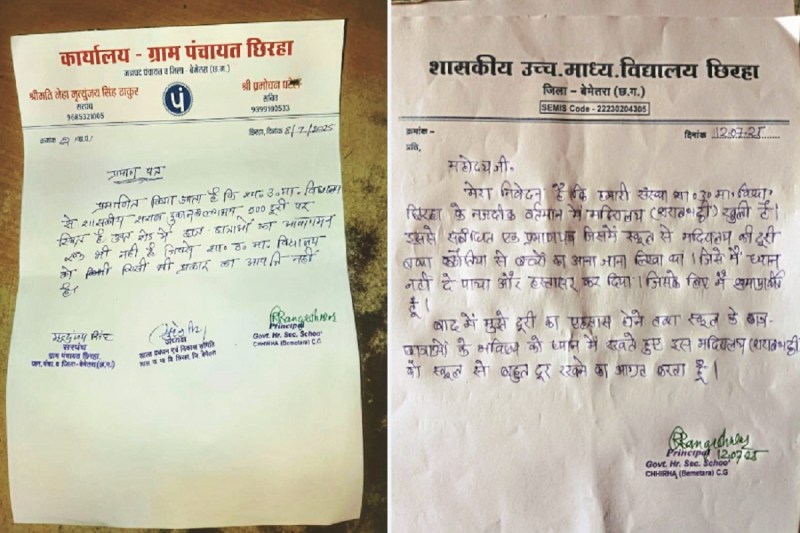 कार्यालय - ग्राम पंचायत छिरहा
जनपद पंचायत व जिला - बेमेतरा (छ.ग.)
श्रीमति नेहा मृत्युंजय सिंह ठाकुर
सरपंच
9685321005
श्री प्रमोचन पटेल
सचिव
9399100533
क्रमांक
छिरहा, दिनांक 8/7/2025
प्रमाण पत्र
प्रमाणित किया जाता है कि शा. उ. मा. विद्यालय
से शासकीय शराब दुकान 000 दूरी पर
स्थित है उक्त रोड में छात्र छात्राओं का आवागमन
भी नही है जिससे शा. उ. मा. विद्यालय
को किसी भी प्रकार का आपत्ति नही
है।
सरपंच
ग्राम पंचायत छिरहा,
जन. पंचा. व जिला-बेमेतरा (छ.ग.)
अध्यक्ष
शाला प्रबंधन एवं विकास समिति
Principal
Govt. Hr. Sec. School
CHHIRHA (Bemetara) C.G
शासकीय उच्च.माध्य.विद्यालय छिरहा
जिला - बेमेतरा (छ.ग.)
SEMIS Code - 22230204305
क्रमांक -
दिनांक 12.07.25
प्रति,
महोदयजी।
मेरा निवेदन है कि हमारी संस्था शा. उ. मा. विद्या.
छिरहा के नजदीक वर्तमान में मदिरालय (शराब भट्ठी) खुली है।
इससे संबंधित एक प्रमाणपत्र जिसमें स्कूल से मदिरालय की दूरी
तथा से बच्चों का आना जाना लिखा था। जिसे मैं ध्यान
नहीं दे पाया और हस्ताक्षर कर दिया। जिसके लिए मैं क्षमाप्रार्थी
हूँ।
बाद में मुझे दूरी का एहसास होने तथा स्कूल के छात्र-
छात्राओं के भविष्य को ध्यान में रखते हुए इस मदिरालय (शराब भट्ठी)
को स्कूल से बहुत दूर रखने का आग्रह करता हूँ।
Principal 12.07.25
Govt. Hr. Sec. School
CHHIRHA (Bemetara) C.G